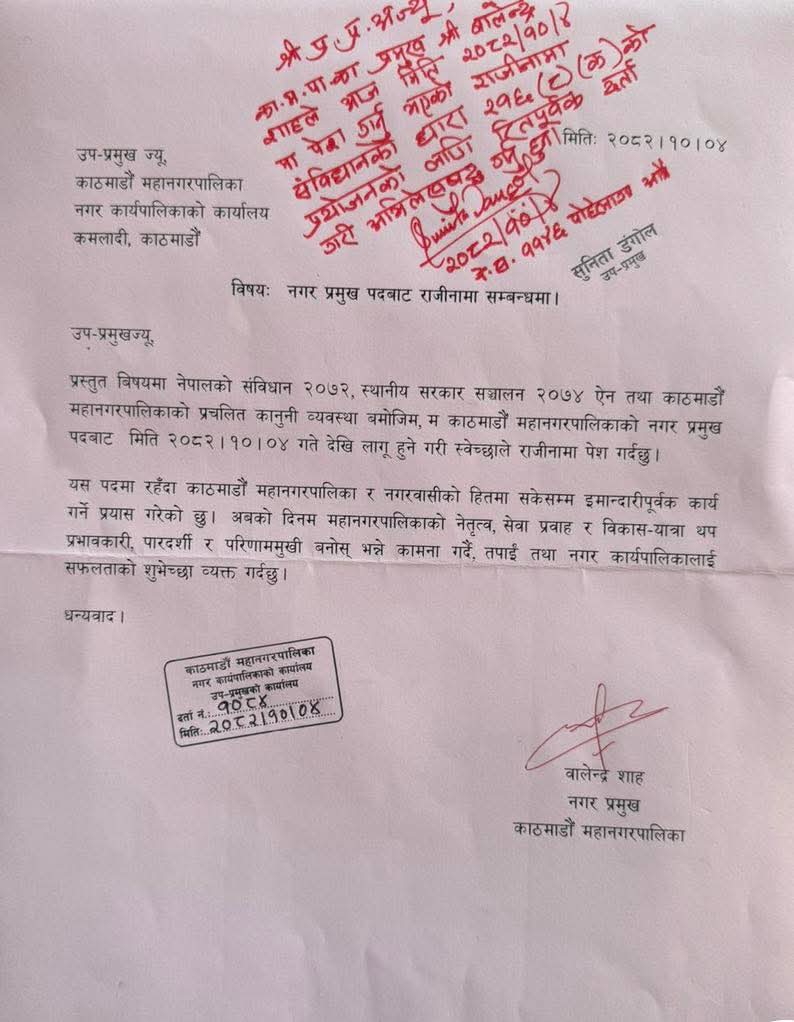 श्री प्र. प्र. अज्यू,
का.म.पा.का प्रमुख श्री बालेन्द्र
शाहले आज मिति २०८२/१०/४
मा पेश गर्नु भएको राजीनामा
संविधानको धारा २१६ (८) (क) को
प्रयोजनको लागि रितपूर्वक दर्ता
गरी अभिलेखबद्ध गर्नु हुन।
२०८२/१०/४
सुनिता डंगोल
उप-प्रमुख
मिति: २०८२।१०।०४
उप-प्रमुख ज्यू,
काठमाडौं महानगरपालिका
नगर कार्यपालिकाको कार्यालय
कमलादी, काठमाडौं
विषयः नगर प्रमुख पदबाट राजीनामा सम्बन्धमा।
उप-प्रमुखज्यू,
प्रस्तुत बिषयमा नेपालको संविधान २०७२, स्थानीय सरकार सञ्चालन २०७४ ऐन तथा काठमाडौं
महानगरपालिकाको प्रचलित कानुनी व्यवस्था बमोजिम, म काठमाडौं महानगरपालिकाको नगर प्रमुख
पदबाट मिति २०८२।१०।०४ गते देखि लागू हुने गरी स्वेच्छाले राजीनामा पेश गर्दछु।
यस पदमा रहँदा काठमाडौं महानगरपालिका र नगरवासीको हितमा सकेसम्म इमान्दारीपूर्वक कार्य
गर्ने प्रयास गरेको छु। अबको दिनम महानगरपालिकाको नेतृत्व, सेवा प्रवाह र विकास-यात्रा थप
प्रभावकारी, पारदर्शी र परिणाममुखी बनोस् भन्ने कामना गर्दै, तपाईं तथा नगर कार्यपालिकालाई
सफलताको शुभेच्छा व्यक्त गर्दछु।
धन्यवाद।
काठमाडौं महानगरपालिका
नगर कार्यपालिकाको कार्यालय
उप-प्रमुखको कार्यालय
दर्ता नं.: १०८४
मिति: २०८२।१०।०४
वालेन्द्र शाह
नगर प्रमुख
काठमाडौं महानगरपालिका